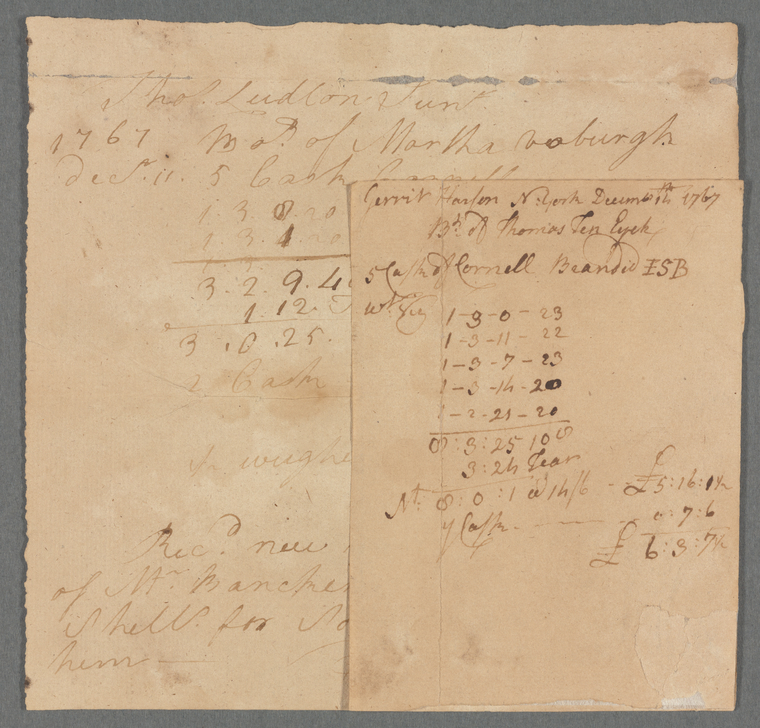 Thos. Ludlow Junr.
1767 Bot. of Martha voburgh
Decr. 11. 5 Cask
1 3 0 20
1 3 1 20
3. 2. 9. 4
1. 12.
3. 0. 25.
2 Cask
Recd. nue
of Mr. Banche
Shells. for
him —
Gerrit Harsen N. York Decem 11th 1767
Bt. of Thomas Ten Eyck
5 Casks of Cornell Brandid ISB
wt. Viz
1 - 3 - 0 - 23
1 - 3 - 11 - 22
1 - 3 - 7 - 23
1 - 3 - 14 - 20
1 - 2 - 21 - 20
8 : 3 : 25 108
3 : 24 Tear
Nt. 8 : 0 : 1 @ 14/6 - £5 : 16 : 1½
5 Casks - 0 : 7 : 6
£ 6 : 3 : 7½